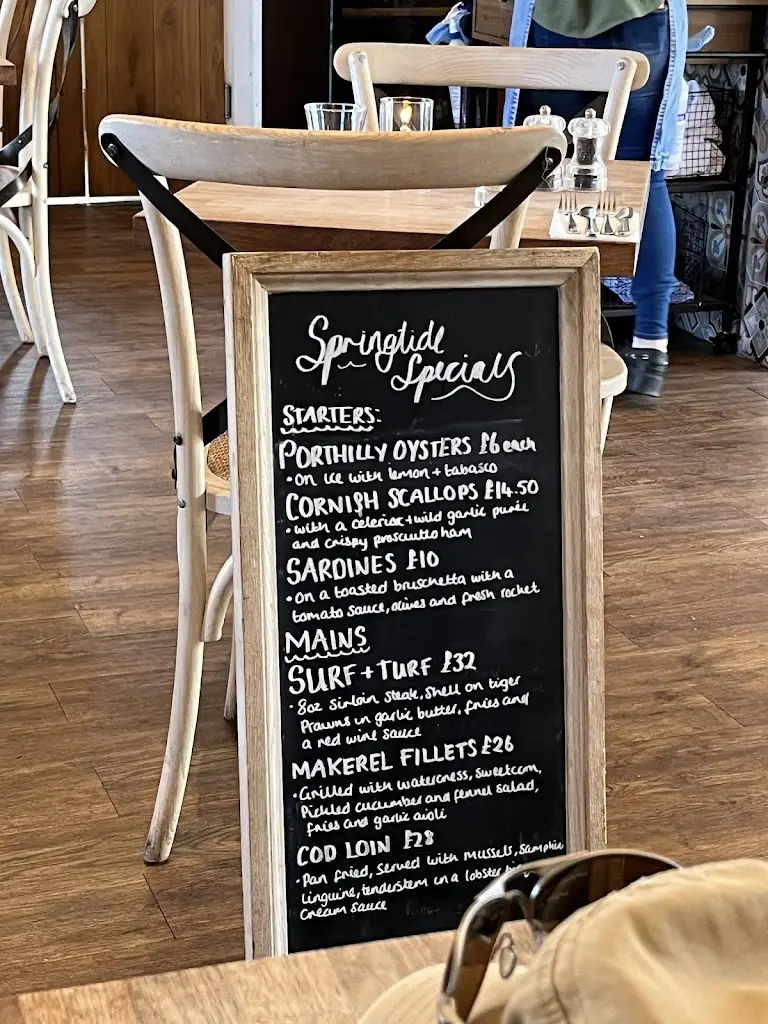 Springtide
Specials
STARTERS:
PORTHILLY OYSTERS £6 each
• On ice with lemon + tabasco
CORNISH SCALLOPS £14.50
• with a celeriac + wild garlic purée
and crispy prosciutto ham
SARDINES £10
• On a toasted bruschetta with a
tomato sauce, olives and fresh rocket
MAINS
SURF + TURF £32
• 8oz Sirloin Steak, Shell on tiger
Prawns in garlic butter, fries and
a red wine sauce
MAKEREL FILLETS £26
• Grilled with watercress, Sweetcorn,
Pickled cucumber and fennel salad,
fries and garlic aioli
COD LOIN £28
• Pan fried, served with mussels, Samphire
linguine, tenderstem in a lobster
Cream sauce